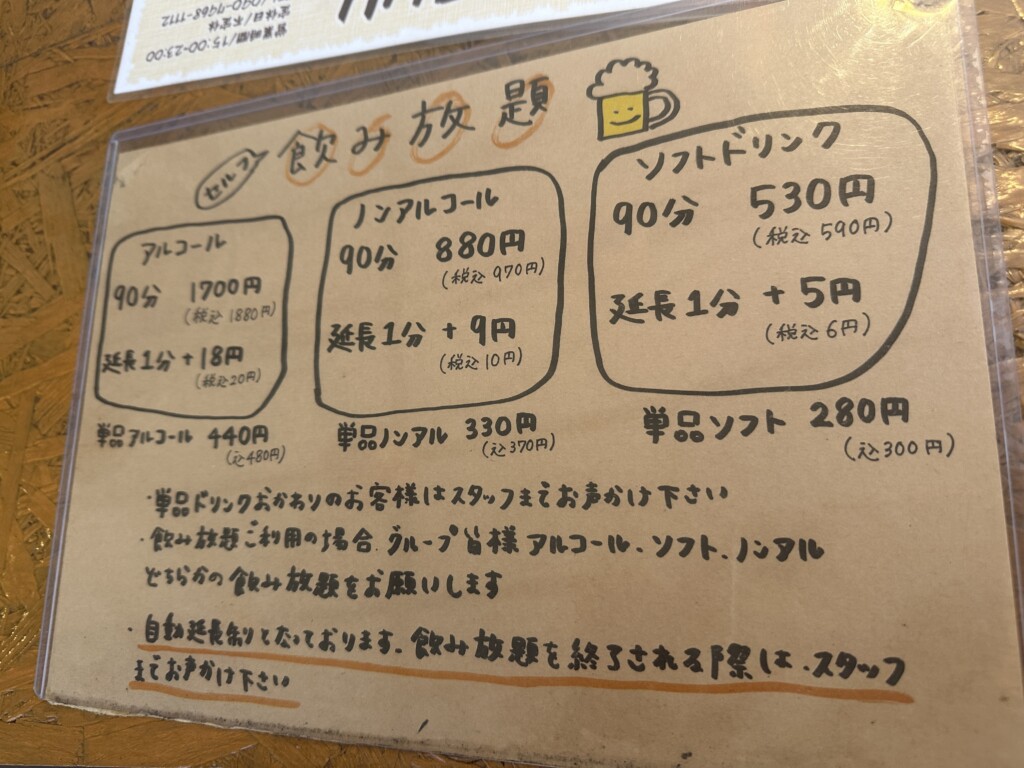 営業時間/15:00-23:00
定休日/不定休
090-7968-1112
セルフ
飲み放題
アルコール
90分 1700円
(税込1880円)
延長1分 +18円
(税込20円)
単品アルコール 440円
(込480円)
ノンアルコール
90分 880円
(税込970円)
延長1分 +9円
(税込10円)
単品ノンアル 330円
(込370円)
ソフトドリンク
90分 530円
(税込590円)
延長1分 +5円
(税込6円)
単品ソフト 280円
(込300円)
・単品ドリンクおかわりのお客様はスタッフまでお声かけ下さい
・飲み放題ご利用の場合、グループ皆様アルコール、ソフト、ノンアル
どちらかの飲み放題をお願いします
・自動延長制となっております。飲み放題を終了される際は、スタッフ
までお声かけ下さい